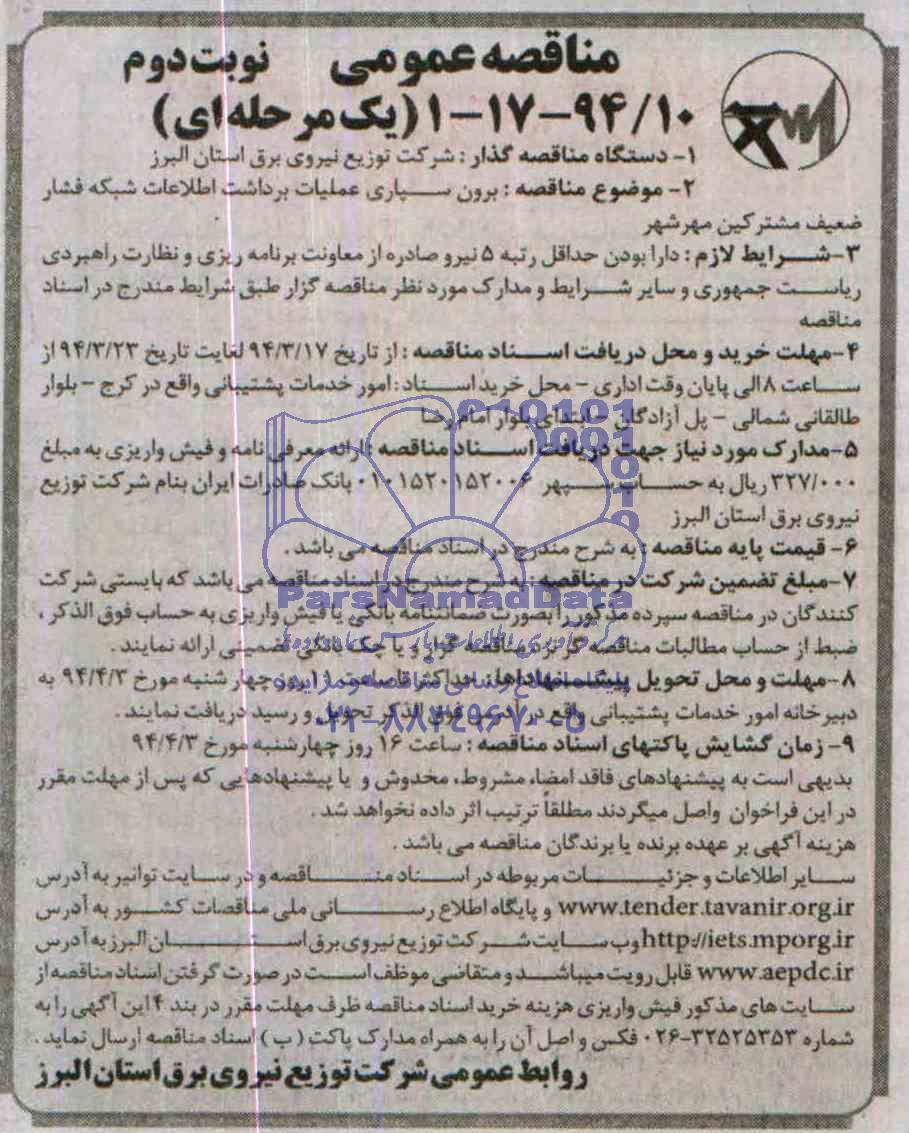 مناقصه عمومی نوبت دوم
۱-۱۷-۹۴/۱۰ (یک مرحله ای)
۱- دستگاه مناقصه گذار : شرکت توزیع نیروی برق استان البرز
۲- موضوع مناقصه : برون سپاری عملیات برداشت اطلاعات شبکه فشار
ضعیف مشترکین مهرشهر
۳-شرایط لازم : دارا بودن حداقل رتبه ۵ نیرو صادره از معاونت برنامه ریزی و نظارت راهبردی
ریاست جمهوری و سایر شرایط و مدارک مورد نظر مناقصه گزار طبق شرایط مندرج در اسناد
مناقصه
۴-مهلت خرید و محل دریافت اسناد مناقصه : از تاریخ ۹۴/۳/۱۷ لغایت تاریخ ۹۴/۳/۲۳ از
ساعت ۸ الی پایان وقت اداری - محل خرید اسناد : امور خدمات پشتیبانی واقع در کرج - بلوار
طالقانی شمالی - پل آزادگان - ابتدای بلوار امام رضا
۵-مدارک مورد نیاز جهت دریافت اسناد مناقصه : ارائه معرفی نامه و فیش واریزی به مبلغ
۳۲۷/۰۰۰ ریال به حساب سپهر ۰۱۰۱۵۲۰۱۵۲۰۰۶ بانک صادرات ایران بنام شرکت توزیع
نیروی برق استان البرز
۶- قیمت پایه مناقصه : به شرح مندرج در اسناد مناقصه می باشد .
۷-مبلغ تضمین شرکت در مناقصه : به شرح مندرج در اسناد مناقصه می باشد که بایستی شرکت
کنندگان در مناقصه سپرده مذکور را بصورت ضمانتنامه بانکی یا فیش واریزی به حساب فوق الذکر ،
ضبط از حساب مطالبات مناقصه گر نزد مناقصه گزار و یا چک بانکی تضمینی ارائه نمایند .
۸-مهلت و محل تحویل پیشنهادها : حداکثر تا ساعت ۱۱ روز چهار شنبه مورخ ۹۴/۴/۳ به
دبیرخانه امور خدمات پشتیبانی واقع در آدرس فوق الذکر تحویل و رسید دریافت نمایند .
۹- زمان گشایش پاکتهای اسناد مناقصه : ساعت ۱۶ روز چهارشنبه مورخ ۹۴/۴/۳
بدیهی است به پیشنهادهای فاقد امضاء، مشروط، مخدوش و یا پیشنهادهایی که پس از مهلت مقرر
در این فراخوان واصل میگردند مطلقاً ترتیب اثر داده نخواهد شد .
هزینه آگهی بر عهده برنده یا برندگان مناقصه می باشد .
سایر اطلاعات و جزئیات مربوطه در اسناد مناقصه و در سایت توانیر به آدرس
www.tender.tavanir.org.ir و پایگاه اطلاع رسانی ملی مناقصات کشور به آدرس
http://iets.mporg.ir وب سایت شرکت توزیع نیروی برق استان البرز به آدرس
www.aepdc.ir قابل رویت میباشد و متقاضی موظف است در صورت گرفتن اسناد مناقصه از
سایت های مذکور فیش واریزی هزینه خرید اسناد مناقصه ظرف مهلت مقرر در بند ۴ این آگهی را به
شماره ۳۲۵۲۵۳۵۳-۰۲۶ فکس و اصل آن را به همراه مدارک پاکت ( ب ) اسناد مناقصه ارسال نماید .
روابط عمومی شرکت توزیع نیروی برق استان البرز
ParsNamadData